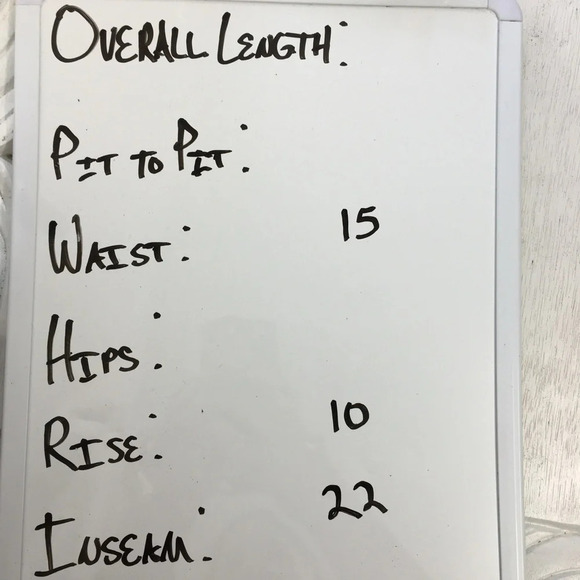 OVERALL LENGTH:
PIT TO PIT:
WAIST: 15
HIPS:
RISE: 10
INSEAM: 22